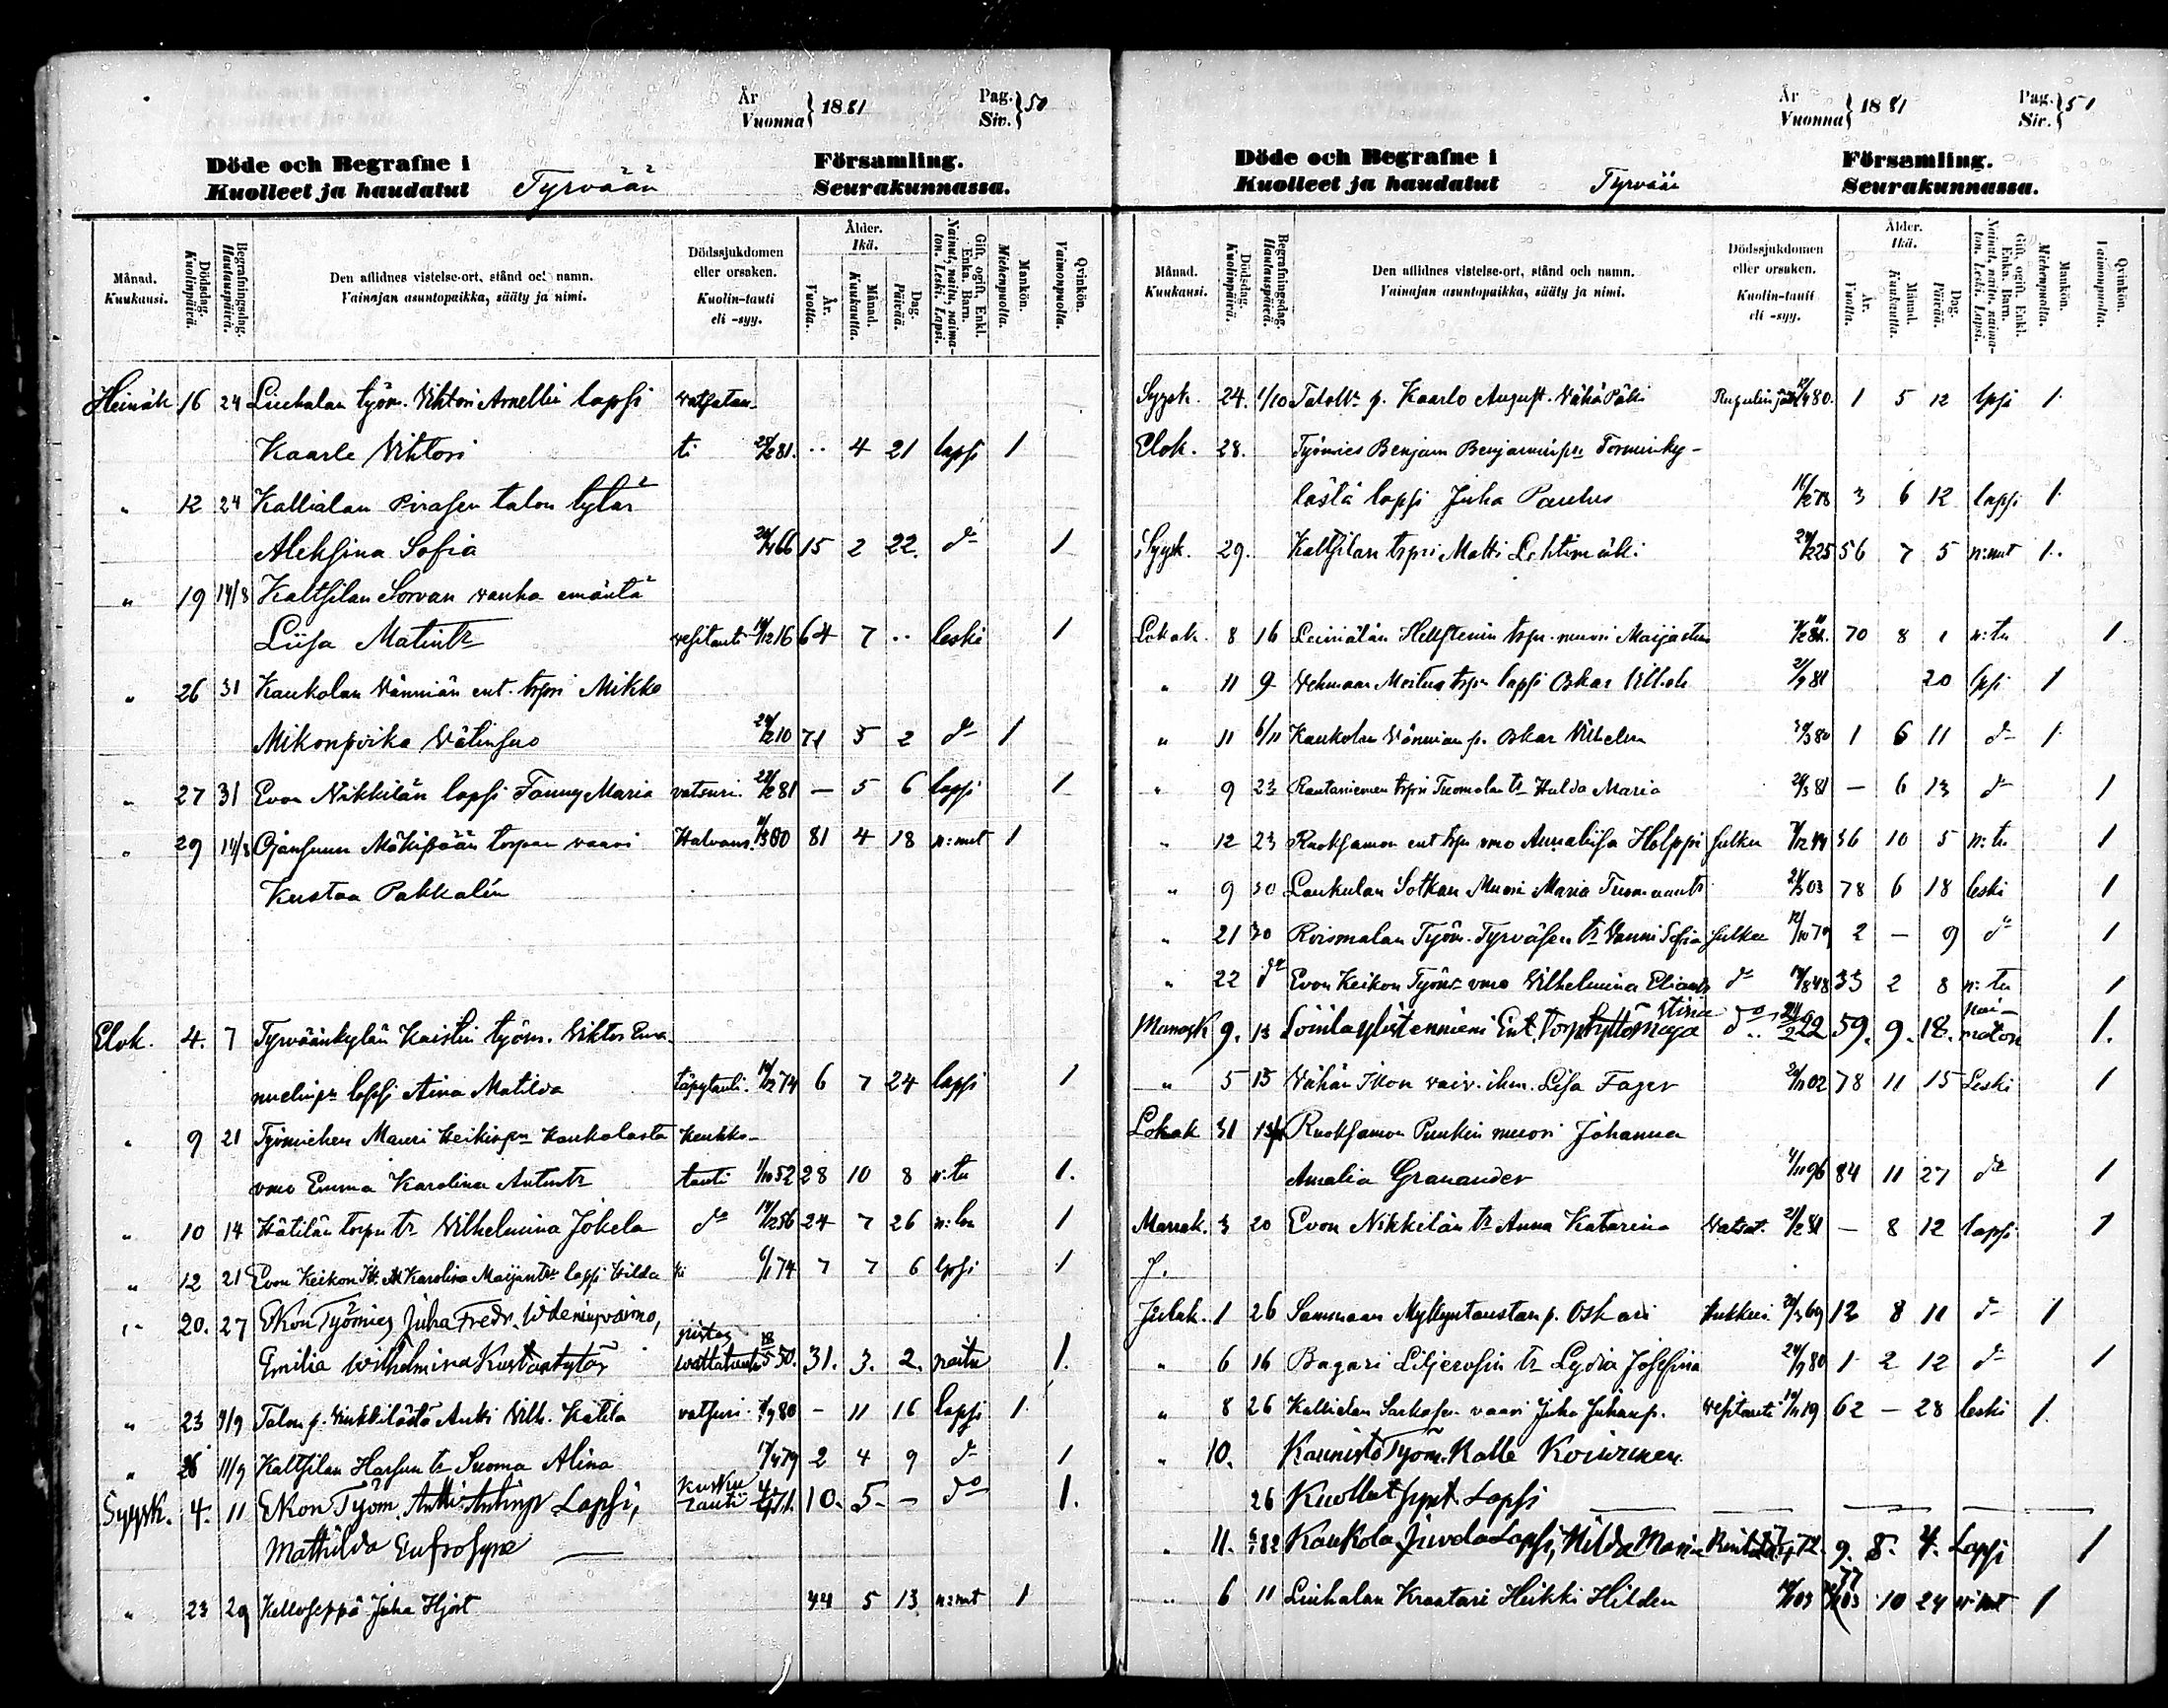 År
Vuonna } 1881
Pag.
Siv. } 50
Döde och Begrafne i
Kuolleet ja haudatut
Tyrvään
Församling.
Seurakunnassa.
Månad.
Kuukausi.
Dödsdag.
Kuolinpäivä.
Begrafningsdag.
Hautauspäivä.
Den aflidnes vistelse-ort, stånd och namn.
Vainajan asuntopaikka, sääty ja nimi.
Dödssjukdomen
eller orsaken.
Kuolin-tauti
eli -syy.
Ålder.
Ikä.
År.
Vuotta.
Månad.
Kuukautta.
Dag.
Päivää.
Gift, ogift, Enkl.
Enka. Barn.
Nainut, naitu, naima-
ton. Leski. Lapsi.
Mankön.
Miehenpuolta.
Qvinkön.
Vaimonpuolta.
Heinäk 16 24 Liuhalan työm. Viktori Arnellin lapsi vatsatau-
Kaarle Viktori ti 25/2 81. .. 4 21 lapsi 1
" 12 24 Kallialan Pirasen talon tytär
Aleksina Sofia 20/4 66 15 2 22 do 1
" 19 14/8 Kaltsilan Sorvan vanha emäntä
Liisa Matintr vesitauti 19/12 16 64 7 .. leski 1
" 26 31 Kaukolan Männiän ent. trpri Mikko
Mikonpoika Välinsuo 24/2 10 71 5 2 do 1
" 27 31 Evon Nikkilän lapsi Fanny Maria vatsuri. 22/2 81 — 5 6 lapsi 1
" 29 14/8 Ojansuun Mäkipään torpan vaari Halvaus. 11/3 00 81 4 18 n:mt 1
Kustaa Pakkalin
Elok. 4. 7 Tyrväänkylän Kaistin työm. Viktor Ema-
nuelinpn lapsi Aina Matilda täpytauti. 10/12 74 6 7 24 lapsi 1
" 9 21 Työmiehen Mauri Heikinpn Kaukolasta keuhko-
vmo Emma Karolina Antintr tauti 1/10 52 28 10 8 n:tu 1.
" 10 14 Hätilän torpn tr Vilhelmina Jokela do 14/12 56 24 7 26 n:ton 1
" 12 21 Evon Keikon Karolina Maijantr lapsi Hilda 6/1 74 7 7 6 lapsi 1
" 20. 27 Ekon Työmies Juha Fredr. vaimo,
Emilia Wilhelmina Kustantytär wattatauti 18/5 50. 31. 3. 2. naitu 1.
" 23 9/9 Talon p. Vinkkilästä Antti Vilh. Hatila vatsuri. 7/9 80 - 11 16 lapsi 1.
" 26 11/9 Kaltsilan Harsun tr Suoma Alina 17/4 79 2 4 9 do 1
Syysk. 4. 11 Ekon Työm. Antti Antinpr Lapsi, Kurkku tauti 4/4 71. 10. 5. — do 1.
Mathilda Eufrosyne
" 23 29 Kelloseppä Juha Hjort 44 5 13 n:mt 1
År
Vuonna } 1881
Pag.
Siv. } 51
Döde och Begrafne i
Kuolleet ja haudatut
Tyrvää
Församling.
Seurakunnassa.
Månad.
Kuukausi.
Dödsdag.
Kuolinpäivä.
Begrafningsdag.
Hautauspäivä.
Den aflidnes vistelse-ort, stånd och namn.
Vainajan asuntopaikka, sääty ja nimi.
Dödssjukdomen
eller orsaken.
Kuolin-tauti
eli -syy.
Ålder.
Ikä.
År.
Vuotta.
Månad.
Kuukautta.
Dag.
Päivää.
Gift, ogift, Enkl.
Enka. Barn.
Nainut, naitu, naima-
ton. Leski. Lapsi.
Mankön.
Miehenpuolta.
Qvinkön.
Vaimonpuolta.
Syysk. 24. 1/10 Talolln p. Kaarlo August. Vähä Päki 12/4 80. 1 5 12 lpsi 1.
Elok. 28. Työmies Benjam Benjaminpn Torminky-
lästä lapsi Juha Paulus 16/2 78 3 6 12 lapsi 1.
Syysk. 29. Kaltsilan trpri Matti Lehtimäki 24/2 25 56 7 5 n:mt 1.
Lokak. 8 16 Leiniälän Hellstenin trpn muori Maija 70 8 1 n:tu 1.
" 11 9 Vehmaan Moitua trpn lapsi Oskar Vilhelm 21/9 81 20 lpsi 1
" 11 6/11 Kaukolan Männiän p. Oskar Vilhelm 30/3 80 1 6 11 do 1.
" 9 23 Rautaniemen trpri Tuomolan tr Hulda Maria 26/3 81 — 6 13 do 1
" 12 23 Ruoksamon ent trpn vmo Annaliisa Holppi sulku 7/12 44 36 10 5 n:tu 1
" 9 30 Laukulan Sotkan Muori Maria Tuomaantr 21/3 03 78 6 18 leski 1
" 21 30 Roismalan Työm. Tyrväsen tr Wanni Sofia sulku 12/10 79 2 — 9 do 1
" 22 do Evon Keikon Työm vmo Vilhelmina Eliantr do 14/8 48 33 2 8 n: tu 1
Marrask 9. 13 do.. 21/2 22 59. 9. 18. nai-maton 1.
" 5 13 Vähän Ikon vaiv. ihm. Lisa Fager 20/11 02 78 11 15 Leski 1
Lokak 31 13/11 Ruoksamon Punkin muori Johanna
Amalia Granander 4/11 96 84 11 27 do 1
Marrak. 3 20 Evon Nikkilän tr Anna Katarina Vatsat. 21/2 81 — 8 12 lapsi 1
J.
Julak. 1 26 Sammaan Myllyntaustan p. Oskari Hukkui 20/3 69 12 8 11 do 1
" 6 16 Bagari Liljerosin tr Lydia Josefina 24/9 80 1 2 12 do 1
" 8 26 Kallialan Sarkasen vaari Juha Juhanp. Vesitauti 10/11 19 62 — 28 leski 1.
" 10. Kaunisto Työm. Kalle Koivunen
26 Kuollut synt. Lapsi
" 11. Kaukola Juvela Lapsi, Hilda Maria 72. 9. 8. 4. Lapsi 1
" 6 11 Liuhalan Kraatari Heikki Hilden 77 10 24 n:mt 1